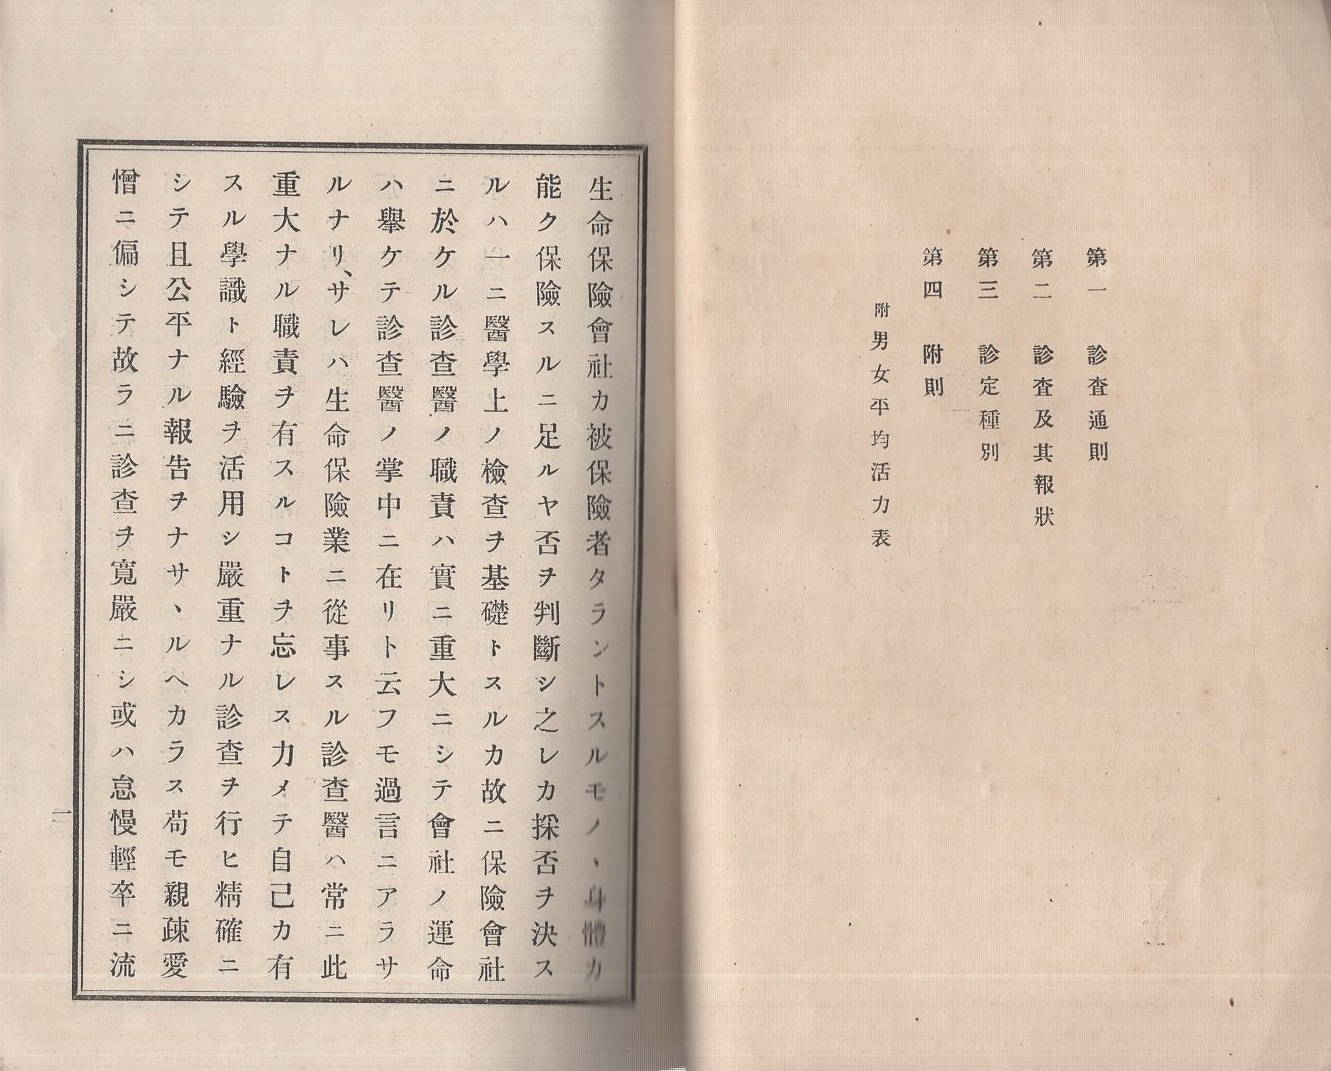 第一　診査通則
第二　診査及其報狀
第三　診定種別
第四　附則
附男女平均活力表
生命保險會社カ被保險者タラントスルモノヽ身體カ
能ク保險スルニ足ルヤ否ヲ判斷シ之レカ採否ヲ決ス
ルハ一ニ醫學上ノ檢查ヲ基礎トスルカ故ニ保險會社
ニ於ケル診查醫ノ職責ハ實ニ重大ニシテ會社ノ運命
ハ擧ケテ診查醫ノ掌中ニ在リト云フモ過言ニアラサ
ルナリ、サレハ生命保險業ニ從事スル診查醫ハ常ニ此
重大ナル職責ヲ有スルコトヲ忘レス力メテ自己カ有
スル學識ト經驗ヲ活用シ嚴重ナル診查ヲ行ヒ精確ニ
シテ且公平ナル報告ヲナサヽルヘカラス苟モ親疎愛
憎ニ偏シテ故ラニ診查ヲ寬嚴ニシ或ハ怠慢輕卒ニ流
一